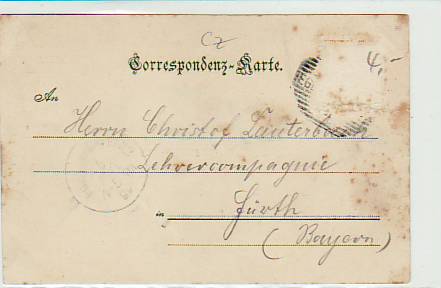 CZ
4,-
Correspondenz-Karte.
An
Herrn Christof Lauterbach
Lehrercompagnie
in Fürth
(Bayern)